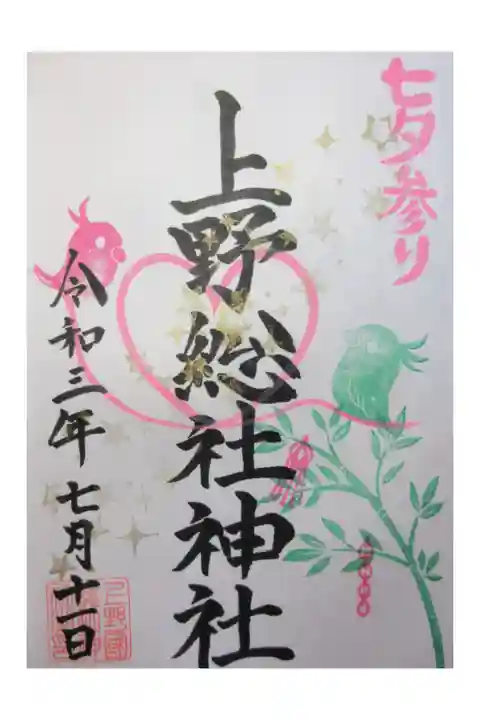 七夕参り
上野総社神社
令和三年 七月十一日